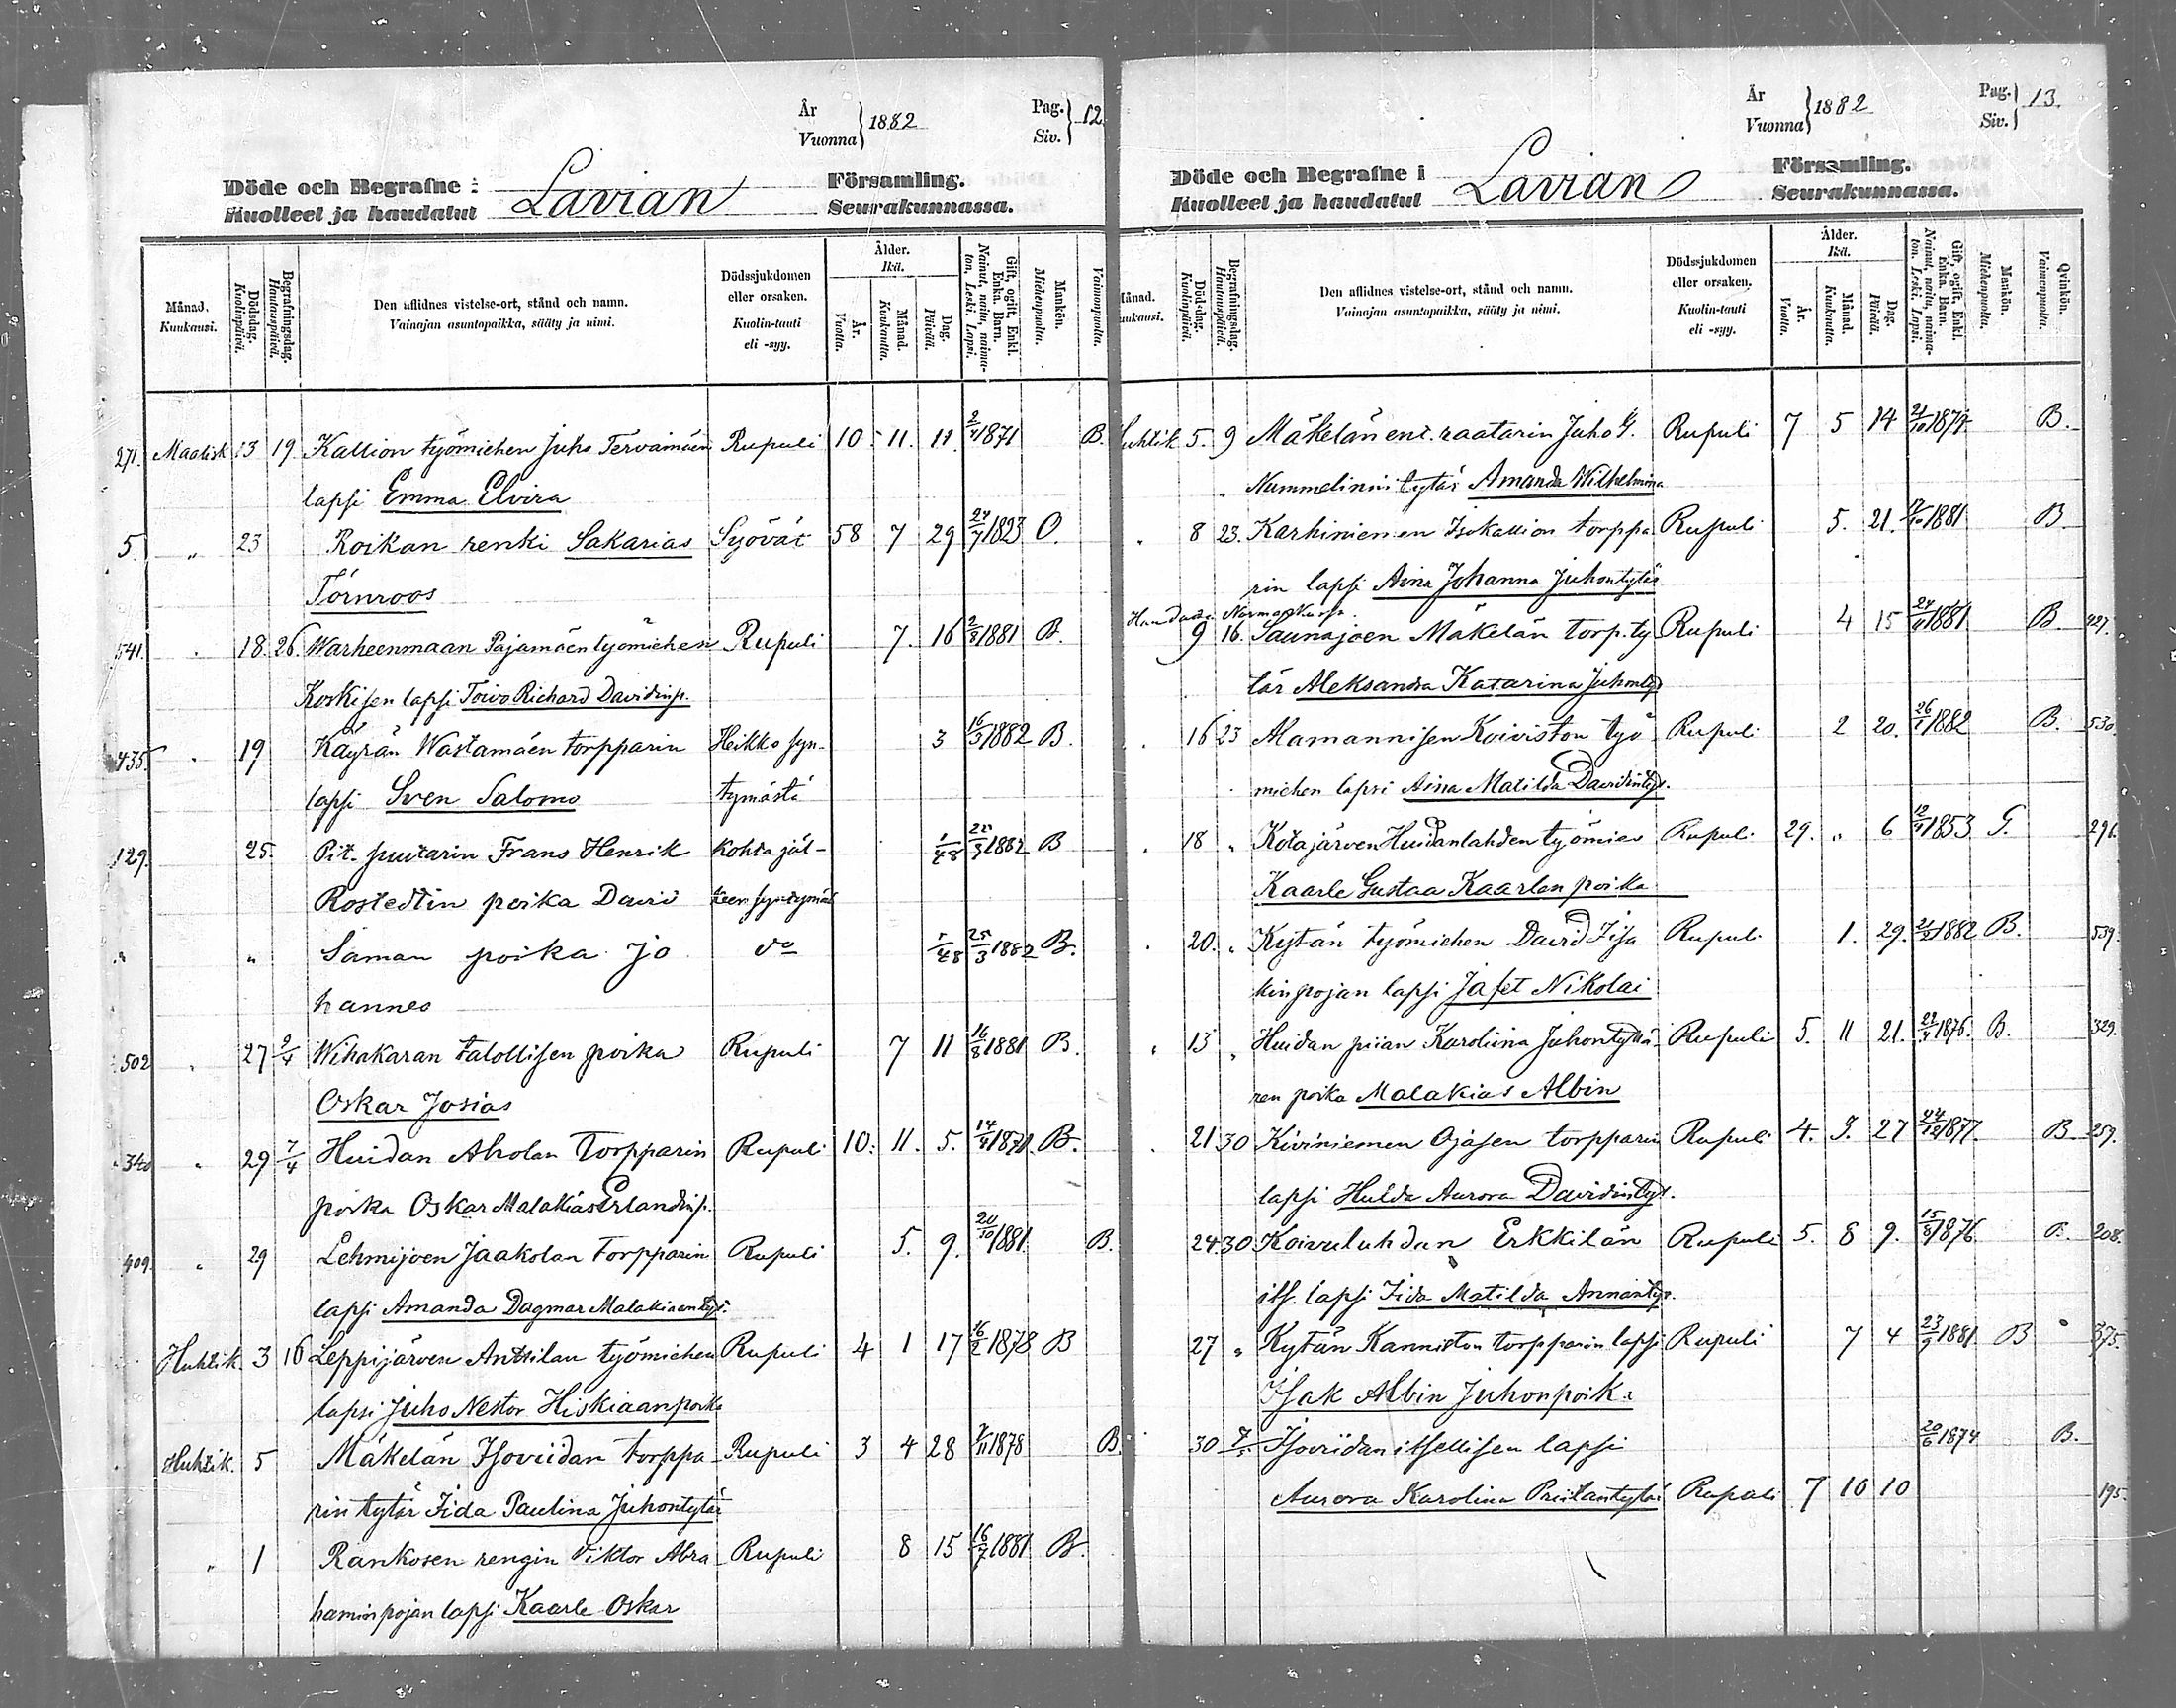 År
Vuonna } 1882
Pag.
Siv. } 12.
Döde och Begrafne i
Kuolleet ja haudatut
Lavian
Församling.
Seurakunnassa.
Månad. Kuukausi.
Dödsdag. Kuolinpäivä.
Begrafningsdag. Hautauspäivä.
Den aflidnes vistelse-ort, stånd och namn.
Vainajan asuntopaikka, sääty ja nimi.
Dödssjukdomen eller orsaken.
Kuolin-tauti eli -syy.
Ålder. Ikä.
År. Vuotta.
Månad. Kuukautta.
Dag. Päivää.
Gift, ogift, Enkl. Enka. Barn.
Nainut, naitu, naimaton. Leski. Lapsi.
Mankön. Miehenpuolta.
Vaimonpuolta.
271. Maalisk 13 19 Kallion työmiehen Juho Tervamäen Rupuli 10 11. 11. 2/4 1871 B.
lapsi Emma Elvira
5. „ 23 Roikan renki Sakarias Syövät 58 7 29 24/7 1823 O.
Törnroos
541. „ 18. 26. Warheenmaan Pajamäen työmiehen Rupuli 7. 16 2/8 1881 B.
Koskisen lapsi Toivo Richard Davidinp.
435. „ 19 Käyrän Wastamäen torpparin Heikko syn- 3 16/3 1882 B.
lapsi Sven Salomo tymästä
129. 25. Pit. suutarin Frans Henrik kohta jäl- 1/48 25/3 1882 B
Rostedtin poika Davi teen syntymät
„ „ Saman poika Jo do 1/48 25/3 1882 B.
hannes
502 „ 27 2/4 Wihakaran talollisen poika Rupuli 7 11 16/8 1881 B.
Oskar Josias
340 „ 29 7/4 Huidan Aholan torpparin Rupuli 10. 11. 5. 14/4 1871. B.
poika Oskar Malakias Erlandinp.
409. „ 29 Lehmijoen Jaakolan torpparin Rupuli 5. 9. 20/10 1881. B.
lapsi Amanda Dagmar Malakiaantyt.
Huhtik. 3 16 Leppijärven Anttilan työmiehen Rupuli 4 1 17 16/2 1878 B
lapsi Juho Nestor Hiskiaanpoika
Huhtik. 5 Mäkelän Isoviidan torppa- Rupuli 3 4 28 /11 1878 B.
rin tytär Iida Paulina Juhontytär
„ 1 Rankosen rengin Viktor Abra- Rupuli 8 15 16/7 1881 B.
hamin pojan lapsi Kaarle Oskar
År
Vuonna } 1882
Pag.
Siv. } 13.
Döde och Begrafne i
Kuolleet ja haudatut
Lavian
Församling.
Seurakunnassa.
Månad. Kuukausi.
Dödsdag. Kuolinpäivä.
Begrafningsdag. Hautauspäivä.
Den aflidnes vistelse-ort, stånd och namn.
Vainajan asuntopaikka, sääty ja nimi.
Dödssjukdomen eller orsaken.
Kuolin-tauti eli -syy.
Ålder. Ikä.
År. Vuotta.
Månad. Kuukautta.
Dag. Päivää.
Gift, ogift, Enkl. Enka. Barn.
Nainut, naitu, naimaton. Leski. Lapsi.
Mankön. Miehenpuolta.
Qvinkön. Vaimonpuolta.
Huhtik 5. 9 Mäkelän ent. raatarin Juho G. Rupuli 7 5 14 21/10 1874 B.
Nummelinin tytär Amanda Wilhelmina
„ 8 23. Karhiniemen Isokallion torppa Rupuli 5. 21. 17/10 1881 B
rin lapsi Aina Johanna Juhontytär
Haudattu
9 16. Saunajoen Mäkelän torp. ty Rupuli 4 15 24/11 1881 B. 427.
tär Aleksandra Katarina Juhontyt
„ 16 23 Alamannisen Koiviston työ Rupuli 2 20. 26/1 1882 B. 530.
miehen lapsi Aina Matilda Davidintyt.
„ 18 „ Kotajärven Huidanlahden työmies Rupuli 29. „ 6 12/4 1853 G. 296.
Kaarle Gustaa Kaarlen poika
„ 20. „ Kytän työmiehen David Iisa Rupuli 1. 29. 21/2 1882 B. 539.
kinpojan lapsi Jafet Nikolai
„ 13 „ Huidan piian Karoliina Juhontyttä- Rupuli 5. 11 21. 22/4 1876. B. 329.
ren poika Malakias Albin
„ 21 30 Kiviniemen Ojasen torpparin Rupuli 4. 3. 27 24/12 1877. B 259.
lapsi Hulda Aurora Davidintyt.
24. 30 Koivuluhdan Erkkilän Rupuli 5. 8 9. 15/8 1876. B. 208.
its. lapsi Iida Matilda Annantyt.
27 „ Kytän Kanniston torpparin lapsi Rupuli 7 4 23/9 1881. B 375.
Isak Albin Juhonpoika
30 7/5 Isoviidan itsellisen lapsi 20/6 1874 B.
Aurora Karolina Priitantytär Rupuli 7 10 10 195.